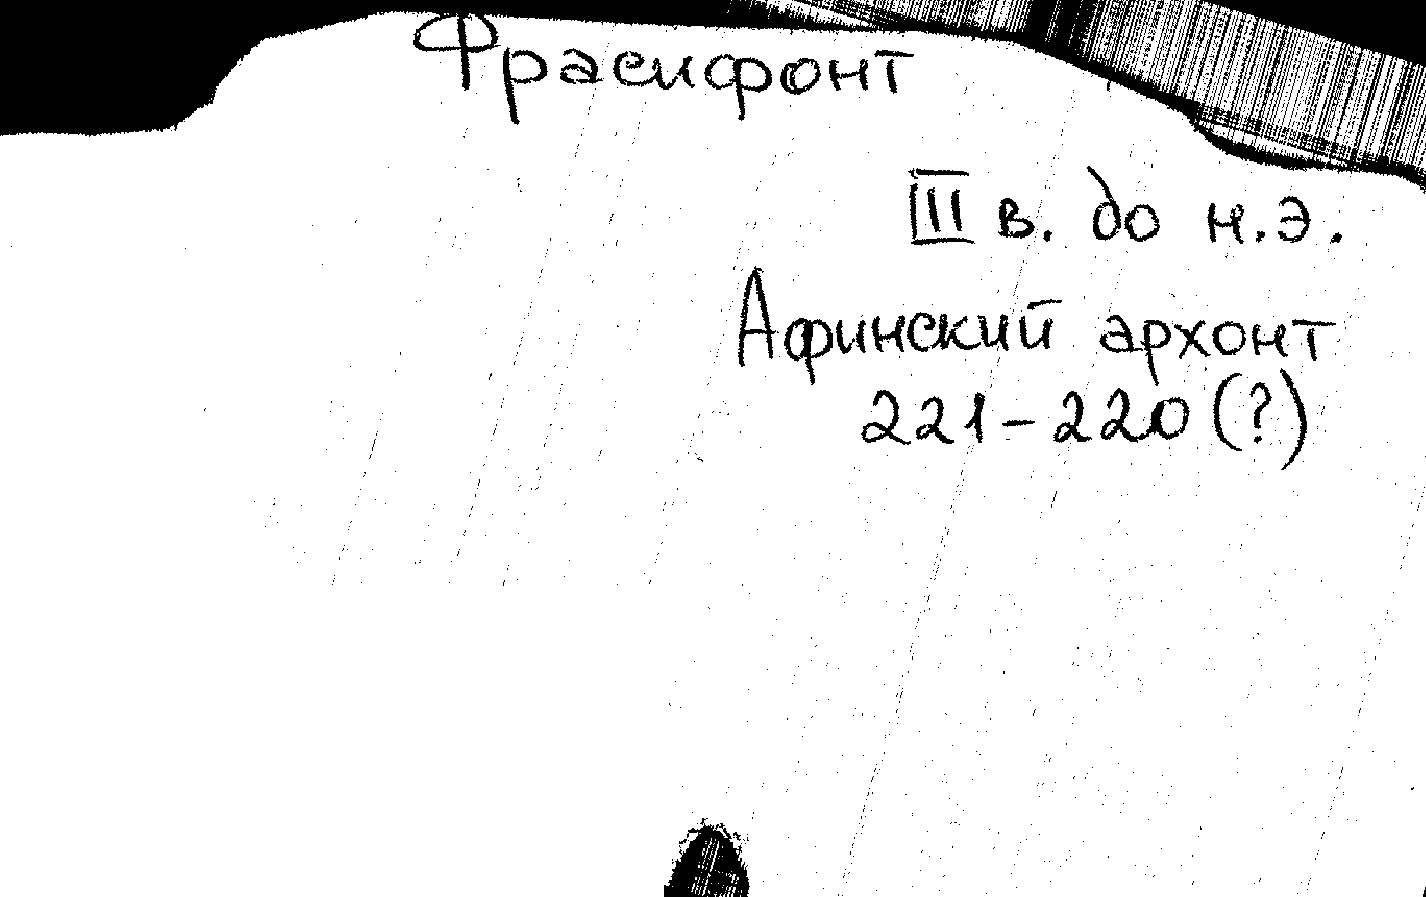 Фрасифонт
III в. до н.э.
Афинский архонт
221-220 (?)